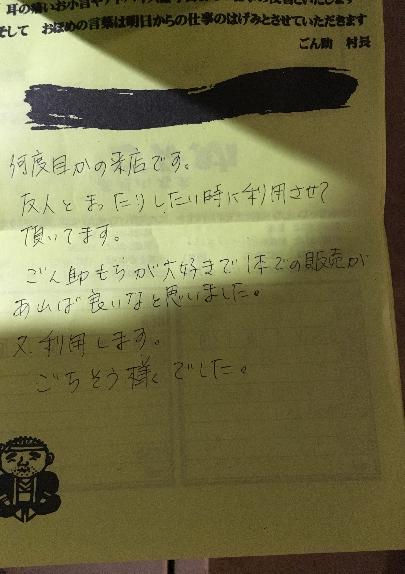 耳の痛いお小言や
そして　おほめの言葉は明日からの仕事のはげみとさせていただきます
ごん助　村長
何度目かの来店です。
友人とまったりしたい時に利用させて
頂いてます。
ごん助もちが大好きで1本での販売が
あれば良いなと思いました。
又利用します。
ごちそう様でした。